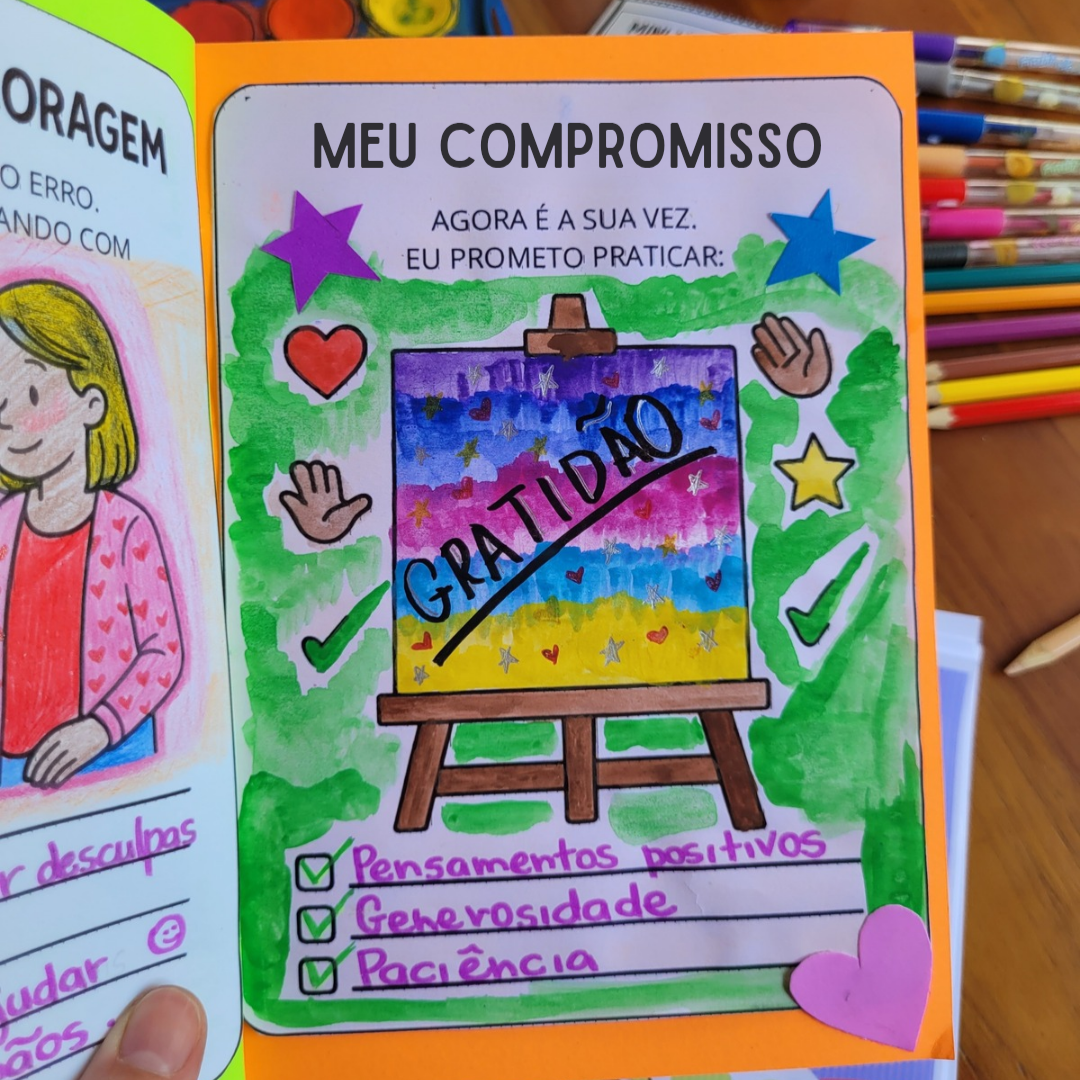 ORAGEM
O ERRO.
ANDO COM
r desculpas
judar
ãos
MEU COMPROMISSO
AGORA É A SUA VEZ.
EU PROMETO PRATICAR:
GRATIDÃO
Pensamentos positivos
Generosidade
Paciência